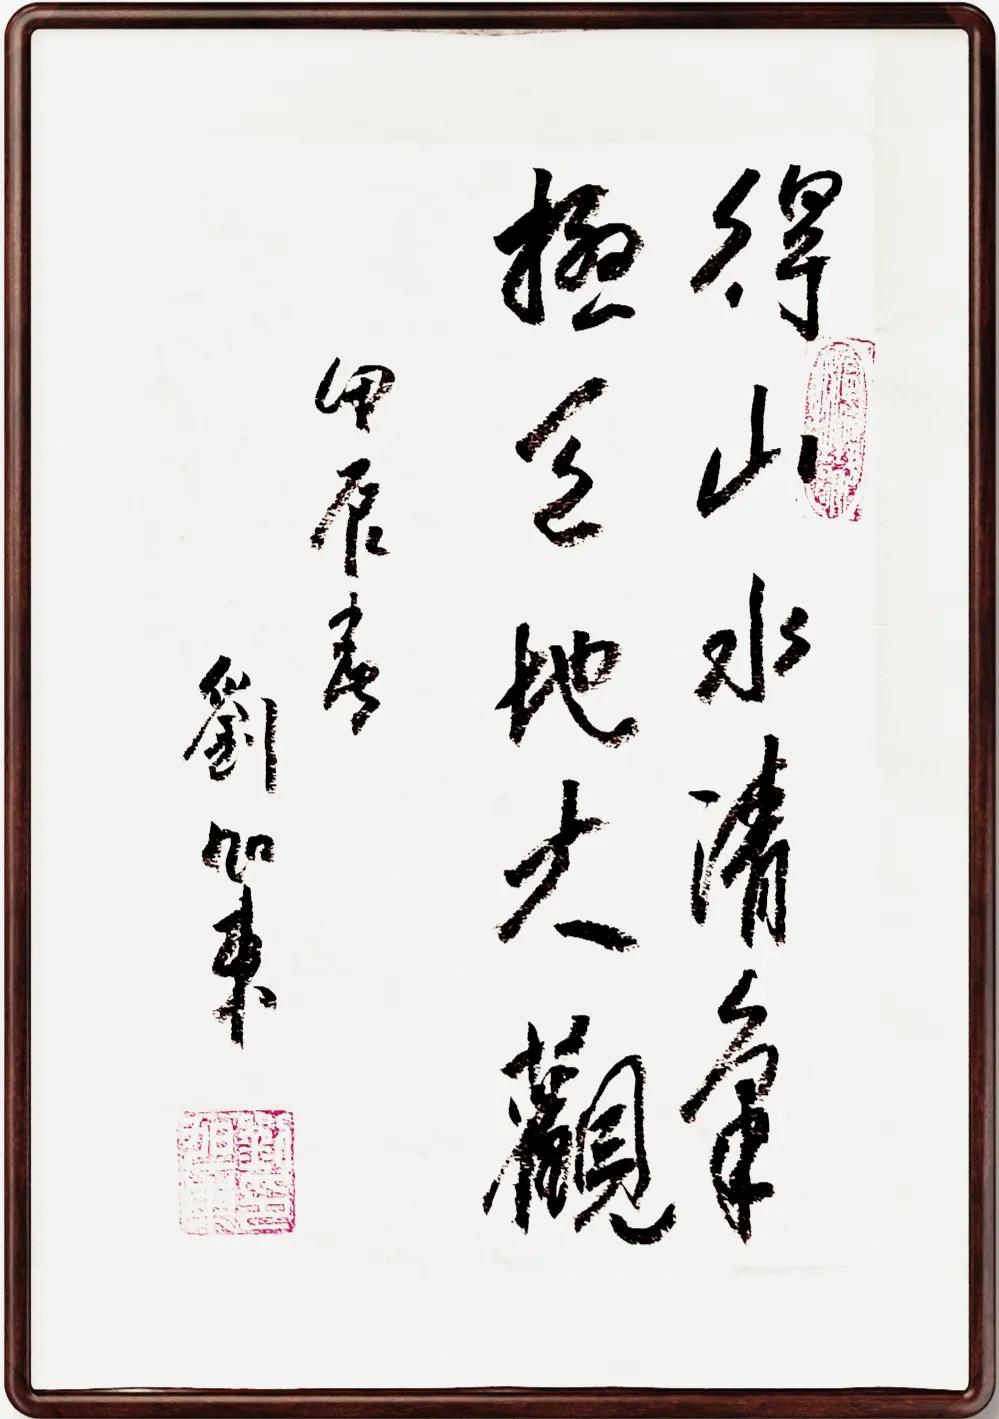 得山水清氣
極天地大觀
甲辰春
劉加東